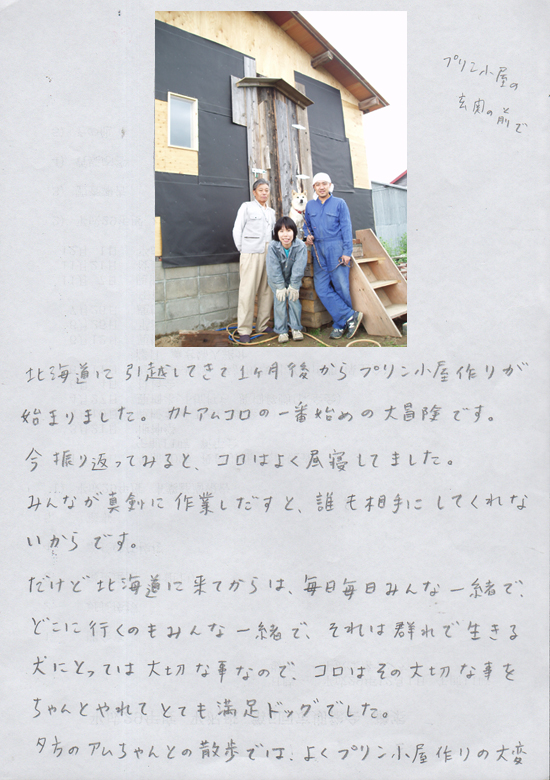 プリン小屋の
玄関の前で
北海道に引越してきて1ヶ月後からプリン小屋作りが
始まりました。カトアムコロの一番始めの大冒険です。
今振り返ってみると、コロはよく昼寝してました。
みんなが真剣に作業しだすと、誰も相手にしてくれな
いからです。
だけど北海道に来てからは、毎日毎日みんな一緒で、
どこに行くのもみんな一緒で、それは群れで生きる
犬にとっては大切な事なので、コロはその大切な事を
ちゃんとやれてとても満足ドッグでした。
夕方のアムちゃんとの散歩では、よくプリン小屋作りの大変